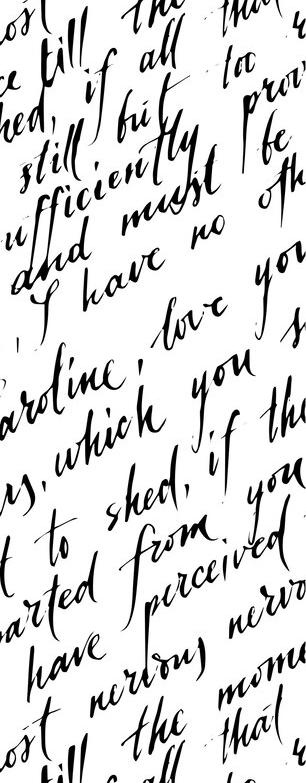 ost the that
ce till
hed, if all too
still but prov
ufficiently be
and must oth
I have no
love you
aroline,
you s
rs, which
shed, if the
t to
from you
arted
perceived
have
nervous nervo
ost the mome
till all that